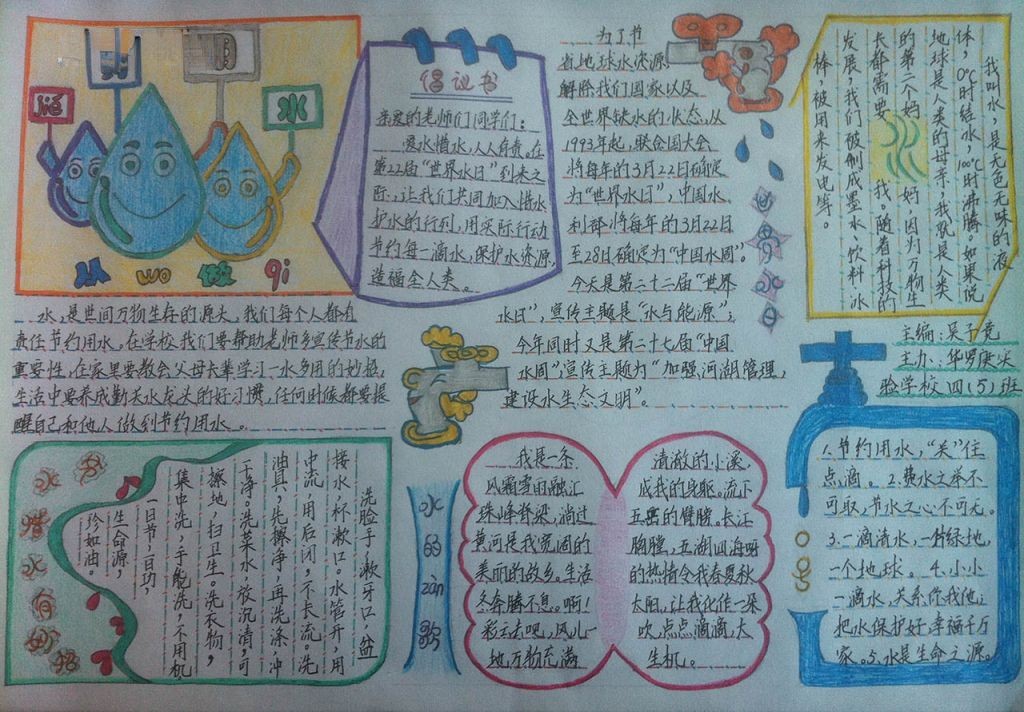 惜
水
从
wo
做
qi
倡议书
亲爱的老师们同学们:
爱水惜水,人人有责。在
第22届“世界水日”到来之
际,让我们共同加入惜水
护水的行列,用实际行动
节约每一滴水,保护水资源,
造福全人类。
为了节
省地球水资源
解除我们国家以及
全世界缺水的状态,从
1993年起,联合国大会
将每年的3月22日确定
为“世界水日”,中国水
利部将每年的3月22日
至28日确定为“中国水周”。
今天是第二十二届“世界
水日”,宣传主题是“水与能源”;
今年同时又是第二十七届“中国
水周”宣传主题为“加强河湖管理,
建设水生态文明”。
水日
我叫水,是无色无味的液
体,0℃时结冰,100℃时沸腾。如果说
地球是人类的母亲,我就是人类
的第二个妈妈,因为万物生
长都需要我。随着科技的
发展,我们被制成墨水、饮料、冰
棒,被用来发电等。
主编:吴子
主办:华罗庚实
验学校四(5)班
水,是世间万物生存的源头,我们每个人都有
责任节约用水。在学校我们要帮助老师多宣传节水的
重要性,在家里要教会父母长辈学习一水多用的妙招,
生活中要养成勤关水龙头的好习惯,任何时候都要提
醒自己和他人做到节约用水。
水
有
妙
招
洗脸手,漱牙口,盆
接水,杯漱口。水管开,用
中流,用后闭,不长流。洗
油具,先擦净,再洗涤,冲
干净。洗菜水,放沉清,可
擦地,扫卫生。洗衣物,
集中洗,手能洗,不用机
一日节,一日功,
生命源,
珍如油。
水
的
zàn
歌
我是一条 清澈的小溪,
风霜雪雨融汇 成我的身躯。流下
珠峰脊梁,淌过 五岳的臂膀。长江
黄河是我宽阔的 胸膛,五湖四海呀
美丽的故乡。生活 的热情令我春夏秋
冬奔腾不息。啊! 太阳,让我化作一朵
彩云去吧,风儿一 吹,点点滴滴,大
地万物充满 生机。
1.节约用水,“关”住
点滴。2.费水之举不
可取,节水之心不可无。
3.一滴清水,一片绿地,
一个地球。4.小小
一滴水,关系你我他;
把水保护好,幸福千万
家。5.水是生命之源。